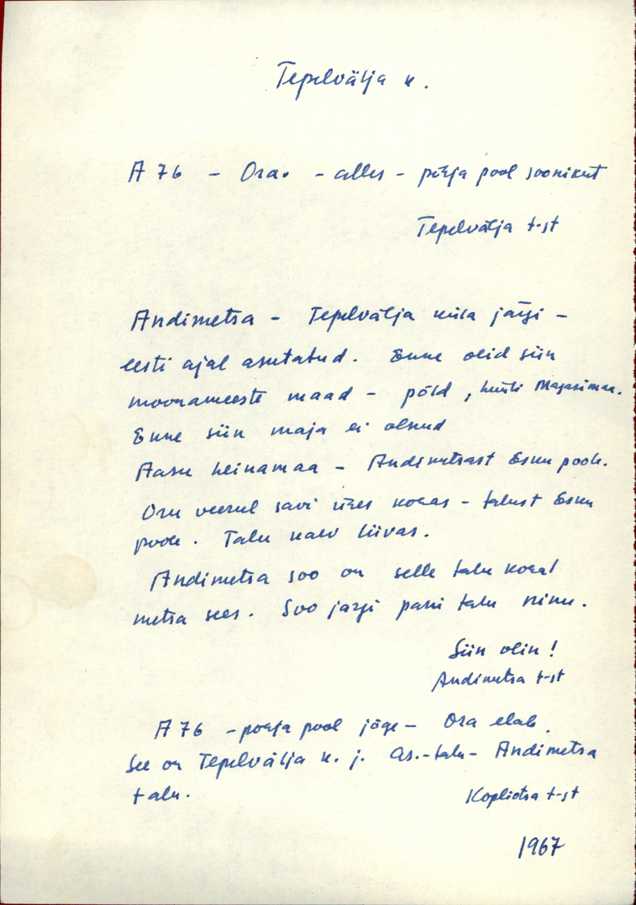 Tepelvälja k.
A 76 – Ora. – alles – põhja pool soonikut
Tepelvälja t-st
Andimetsa – Tepelvälja küla järgi –
eesti ajal asutatud. Enne olid siin
moonameeste maad – põld, hüüti Magasimaa.
Enne siin maja ei olnud
Aasu heinamaa – Andimetsast Esku poole.
Oru veerul savi üles kohas – talust Esku
poole. Talu kaev liivas.
Andimetsa soo on selle talu kohal
metsa sees. Soo järgi pani talu nimi.
Siin olin!
Andimetsa t-st
A 76 – põhja pool jõge – Ora elab.
See on Tepelvälja k. j. as.-talu – Andimetsa
talu.
Dopliotsa t-st
1967